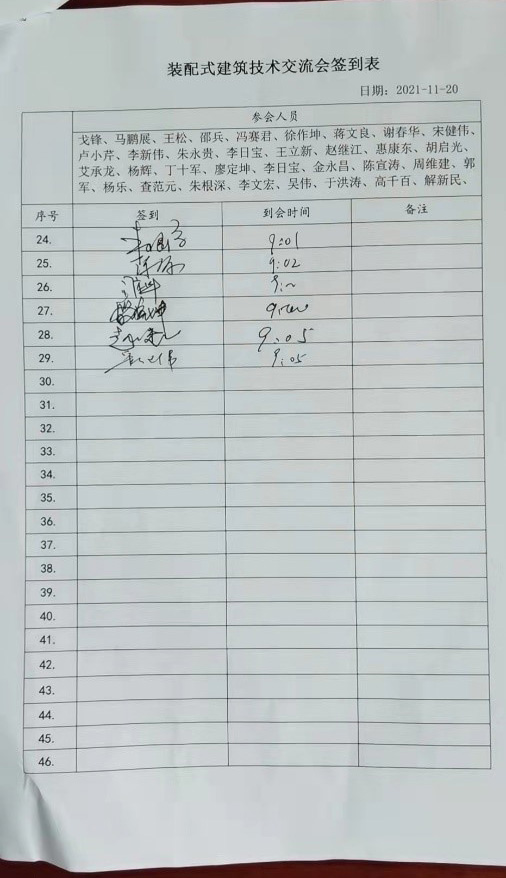 装配式建筑技术交流会签到表
日期：2021-11-20
参会人员
戈锋、马鹏展、王松、邵兵、冯赛君、徐作坤、蒋文良、谢春华、宋健伟、
卢小芹、李新伟、朱永贵、李日宝、王立新、赵继江、惠康东、胡启光、
艾承龙、杨辉、丁十军、廖定坤、李日宝、金永昌、陈宣涛、周维建、郭
军、杨乐、查范元、朱根深、李文宏、吴伟、于洪涛、高千百、解新民、
序号 签到 到会时间 备注
24. 9:01
25. 9:02
26.
27.
28. 9:05
29. 9:05
30.
31.
32.
33.
34.
35.
36.
37.
38.
39.
40.
41.
42.
43.
44.
45.
46.